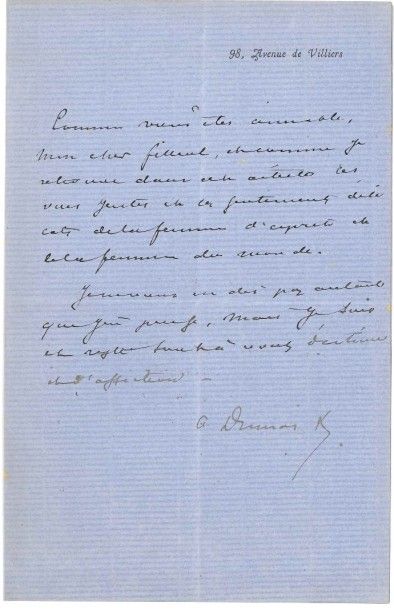 98, Avenue de Villiers
Comme vous êtes aimable,
mon cher filleul, et comme je
retrouve dans cet article les
vues justes et les sentiments déli
cats de la femme d'esprit et
de la femme du monde.
Je ne vous en dis pas autant
que j'en pense, mais je suis
et reste tout à vous d'estime
et d'affection
A Dumas